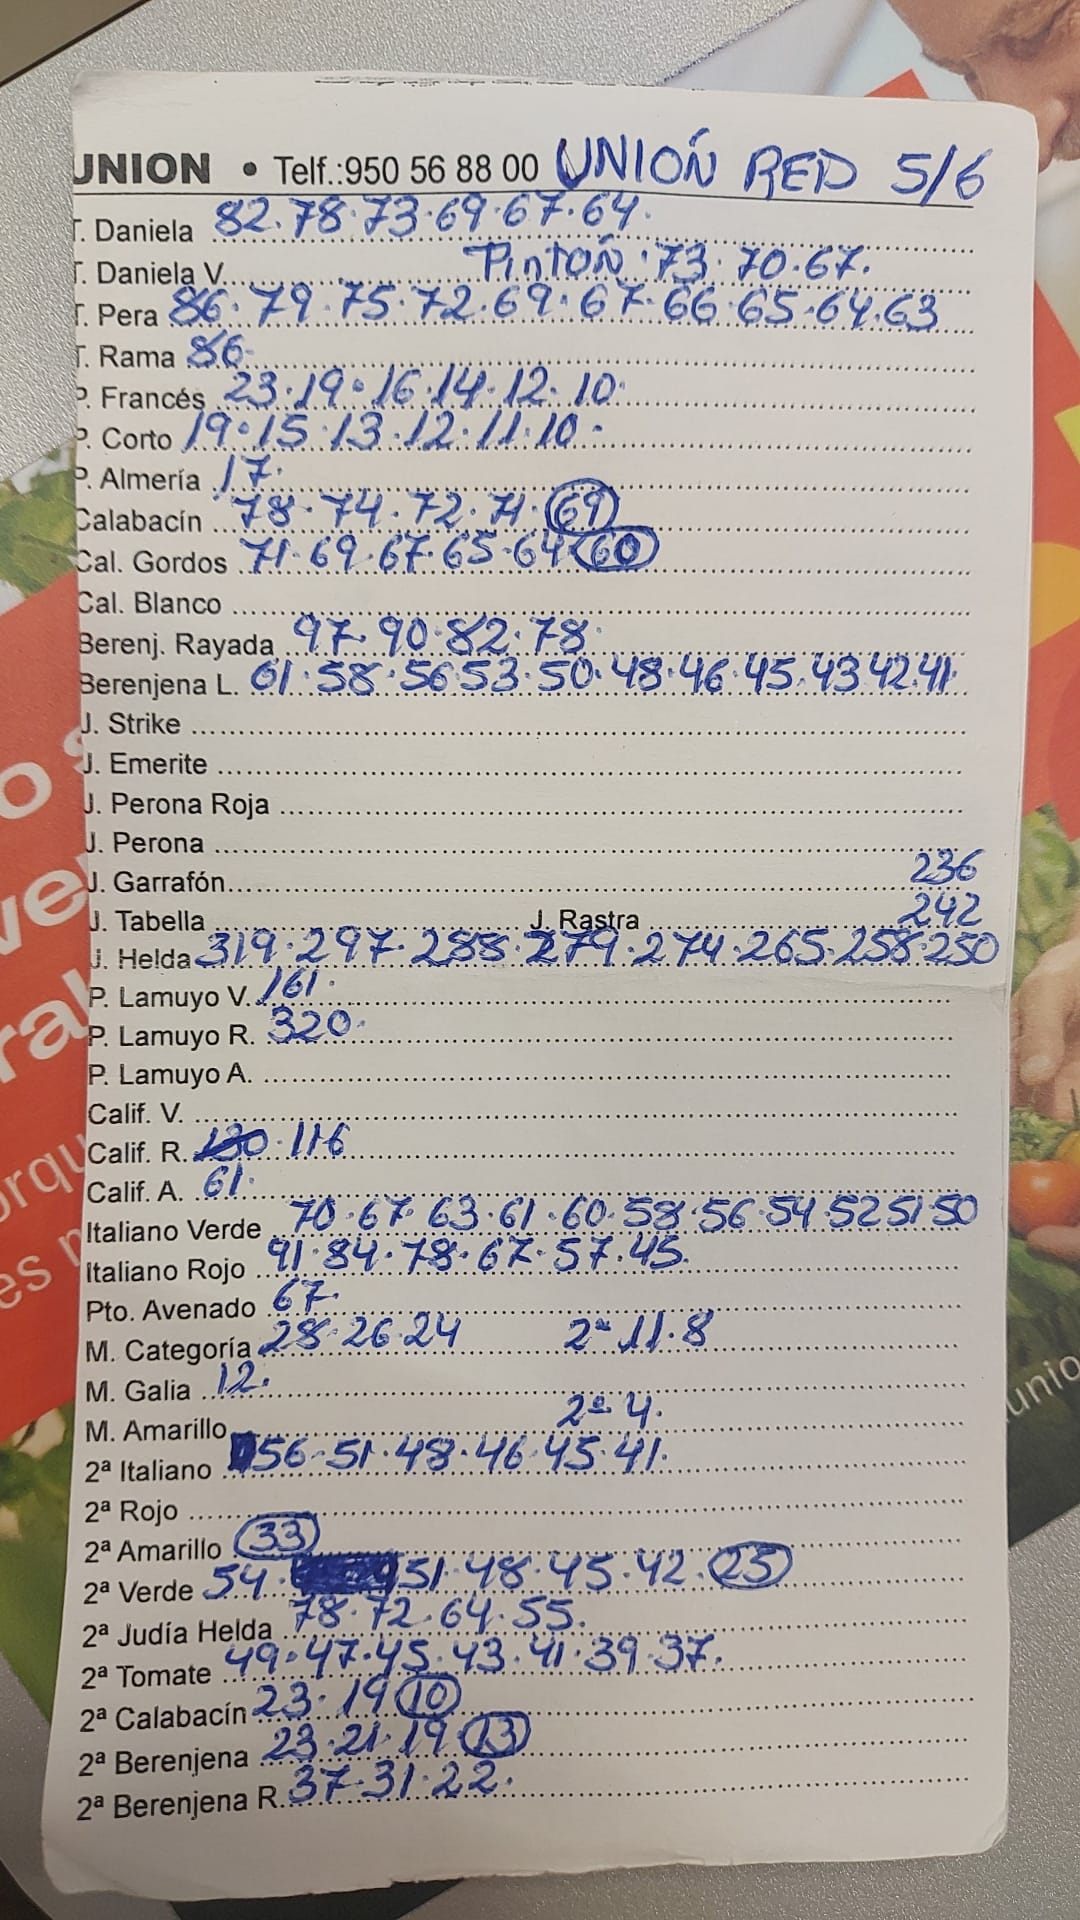 UNION • Telf.:950 56 88 00 UNIOÑ RED 5/6
T. Daniela 82.78.73.69.67.64.
T. Daniela V. PintOÑ.73.70.67.
T. Pera 86.79.75.72.69.67.66.65.64.63
T. Rama 86.
P. Francés 23.19.16.14.12.10.
P. Corto 19.15.13.12.11.10.
P. Almería 17.
Calabacín 78.74.72.71.69
Cal. Gordos 71.69.67.65.64.60
Cal. Blanco
Berenj. Rayada 97.90.82.78.
Berenjena L. 61.58.56.53.50.48.46.45.43.42.41.
J. Strike
J. Emerite
J. Perona Roja
J. Perona
J. Garrafón 236
J. Tabella J. Rastra 242
J. Helda 319.297.288.279.274.265.258.250
P. Lamuyo V. 161.
P. Lamuyo R. 320.
P. Lamuyo A.
Calif. V.
Calif. R. 130.116
Calif. A. 61.
Italiano Verde 70.67.63.61.60.58.56.54.52.51.50
Italiano Rojo 91.84.78.67.57.45.
Pto. Avenado 67.
M. Categoría 28.26.24 2ª 11.8
M. Galia 12.
M. Amarillo 2ª 4.
2ª Italiano 56.51.48.46.45.41.
2ª Rojo
2ª Amarillo 33
2ª Verde 54. 51.48.45.42.25
2ª Judía Helda 78.72.64.55.
2ª Tomate 49.47.45.43.41.39.37.
2ª Calabacín 23.19 10
2ª Berenjena 23.21.19.13
2ª Berenjena R. 37.31.22.